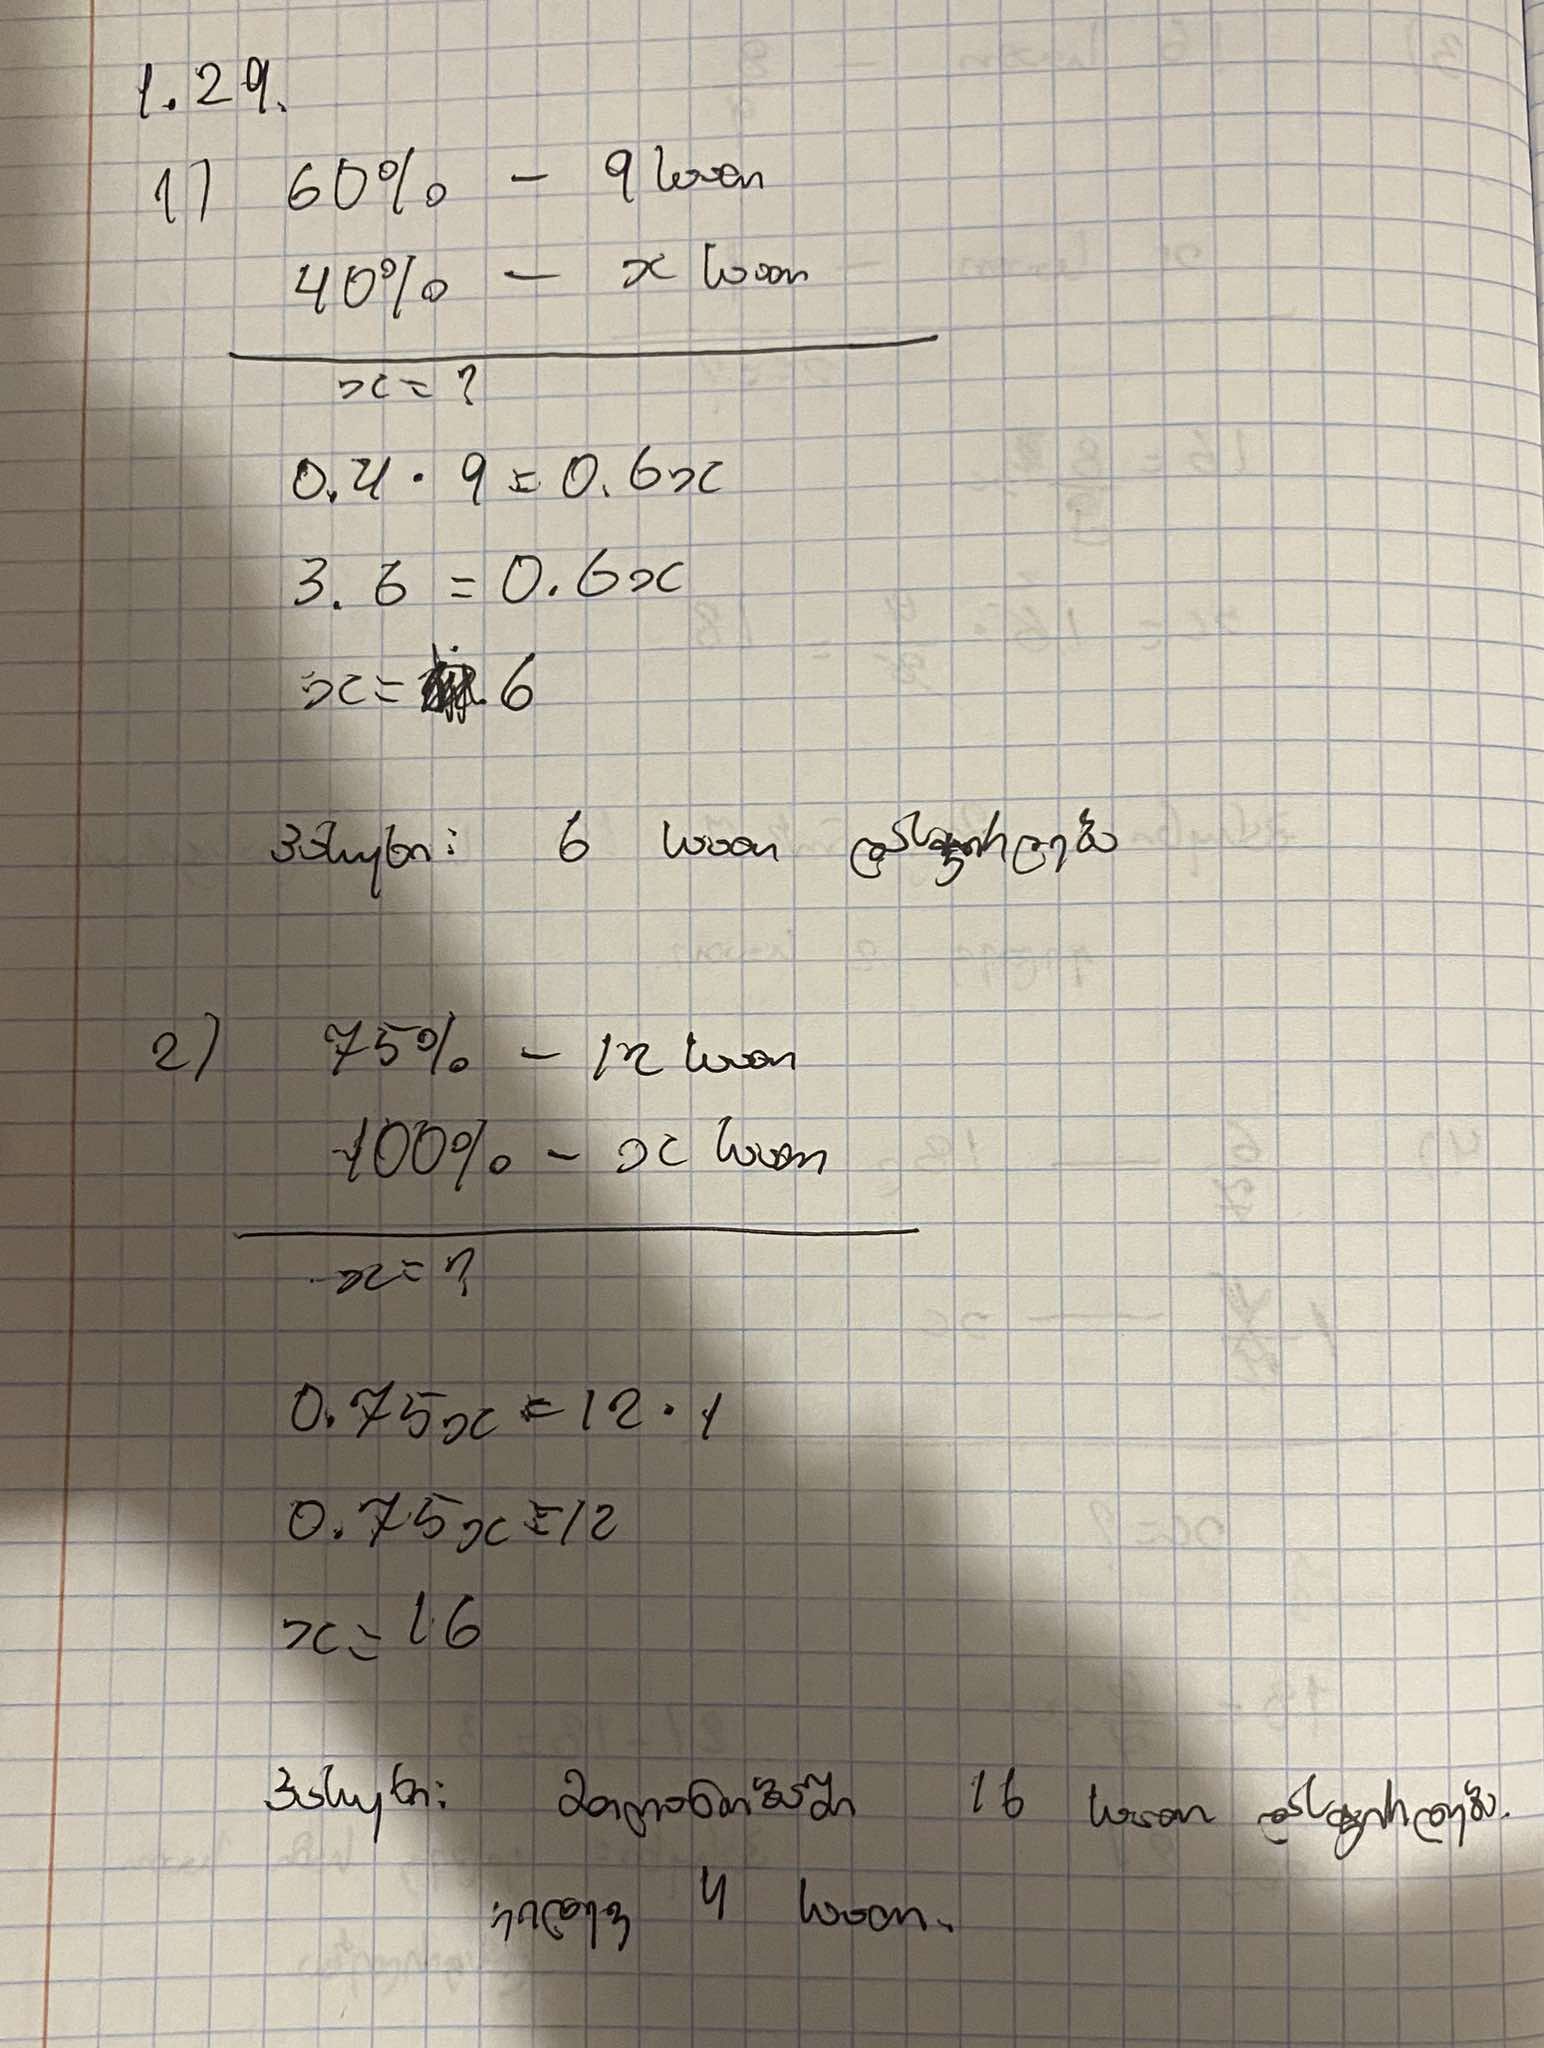 1.29.
1) 60% - 9 საათი
40% - x საათი
x = ?
0.4 · 9 = 0.6x
3.6 = 0.6x
x = 6
პასუხი: 6 საათი დასჭირდება
2) 75% - 12 საათი
100% - x საათი
x = ?
0.75x = 12 · 1
0.75x = 12
x = 16
პასუხი: მთლიანობაში 16 საათი დასჭირდება.
კიდევ 4 საათი.